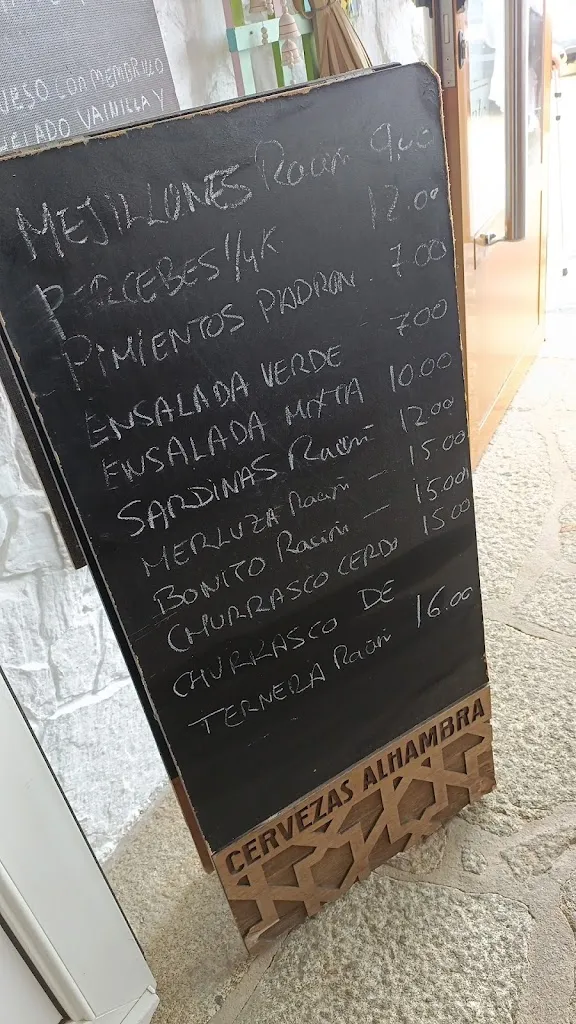 UESO CON MEMBRILLO
ELADO VAINILLA Y
MEJILLONES Ración 9,00
PERCEBES 1/4K 12.00
PIMIENTOS PADRON. 7.00
ENSALADA VERDE - 7.00
ENSALADA MIXTA 10.00
SARDINAS Ración 12.00
MERLUZA Ración - 15.00
BONITO Ración - 15.00
CHURRASCO CERDO 15.00
CHURRASCO DE
TERNERA Ración 16.00
CERVEZAS ALHAMBRA